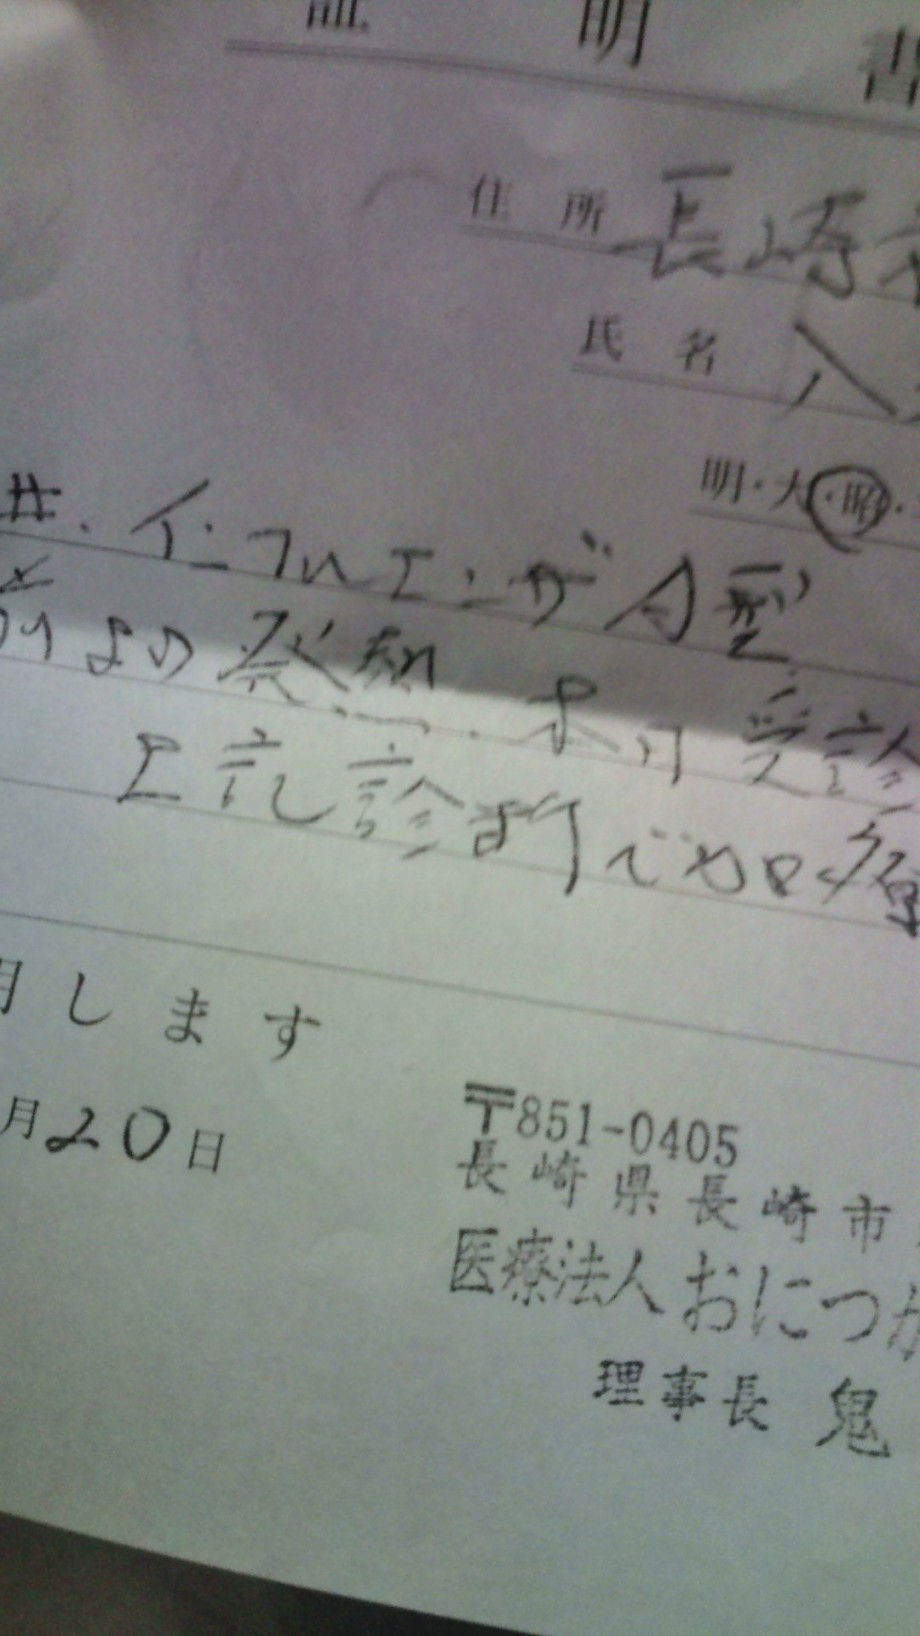 証明書
住所 長崎
氏名
明・大・昭・
#. インフルエンザA型
より発熱. 本日受診
上記診断にて加療
します
月20日
〒851-0405
長崎県長崎市
医療法人おにつか
理事長 鬼